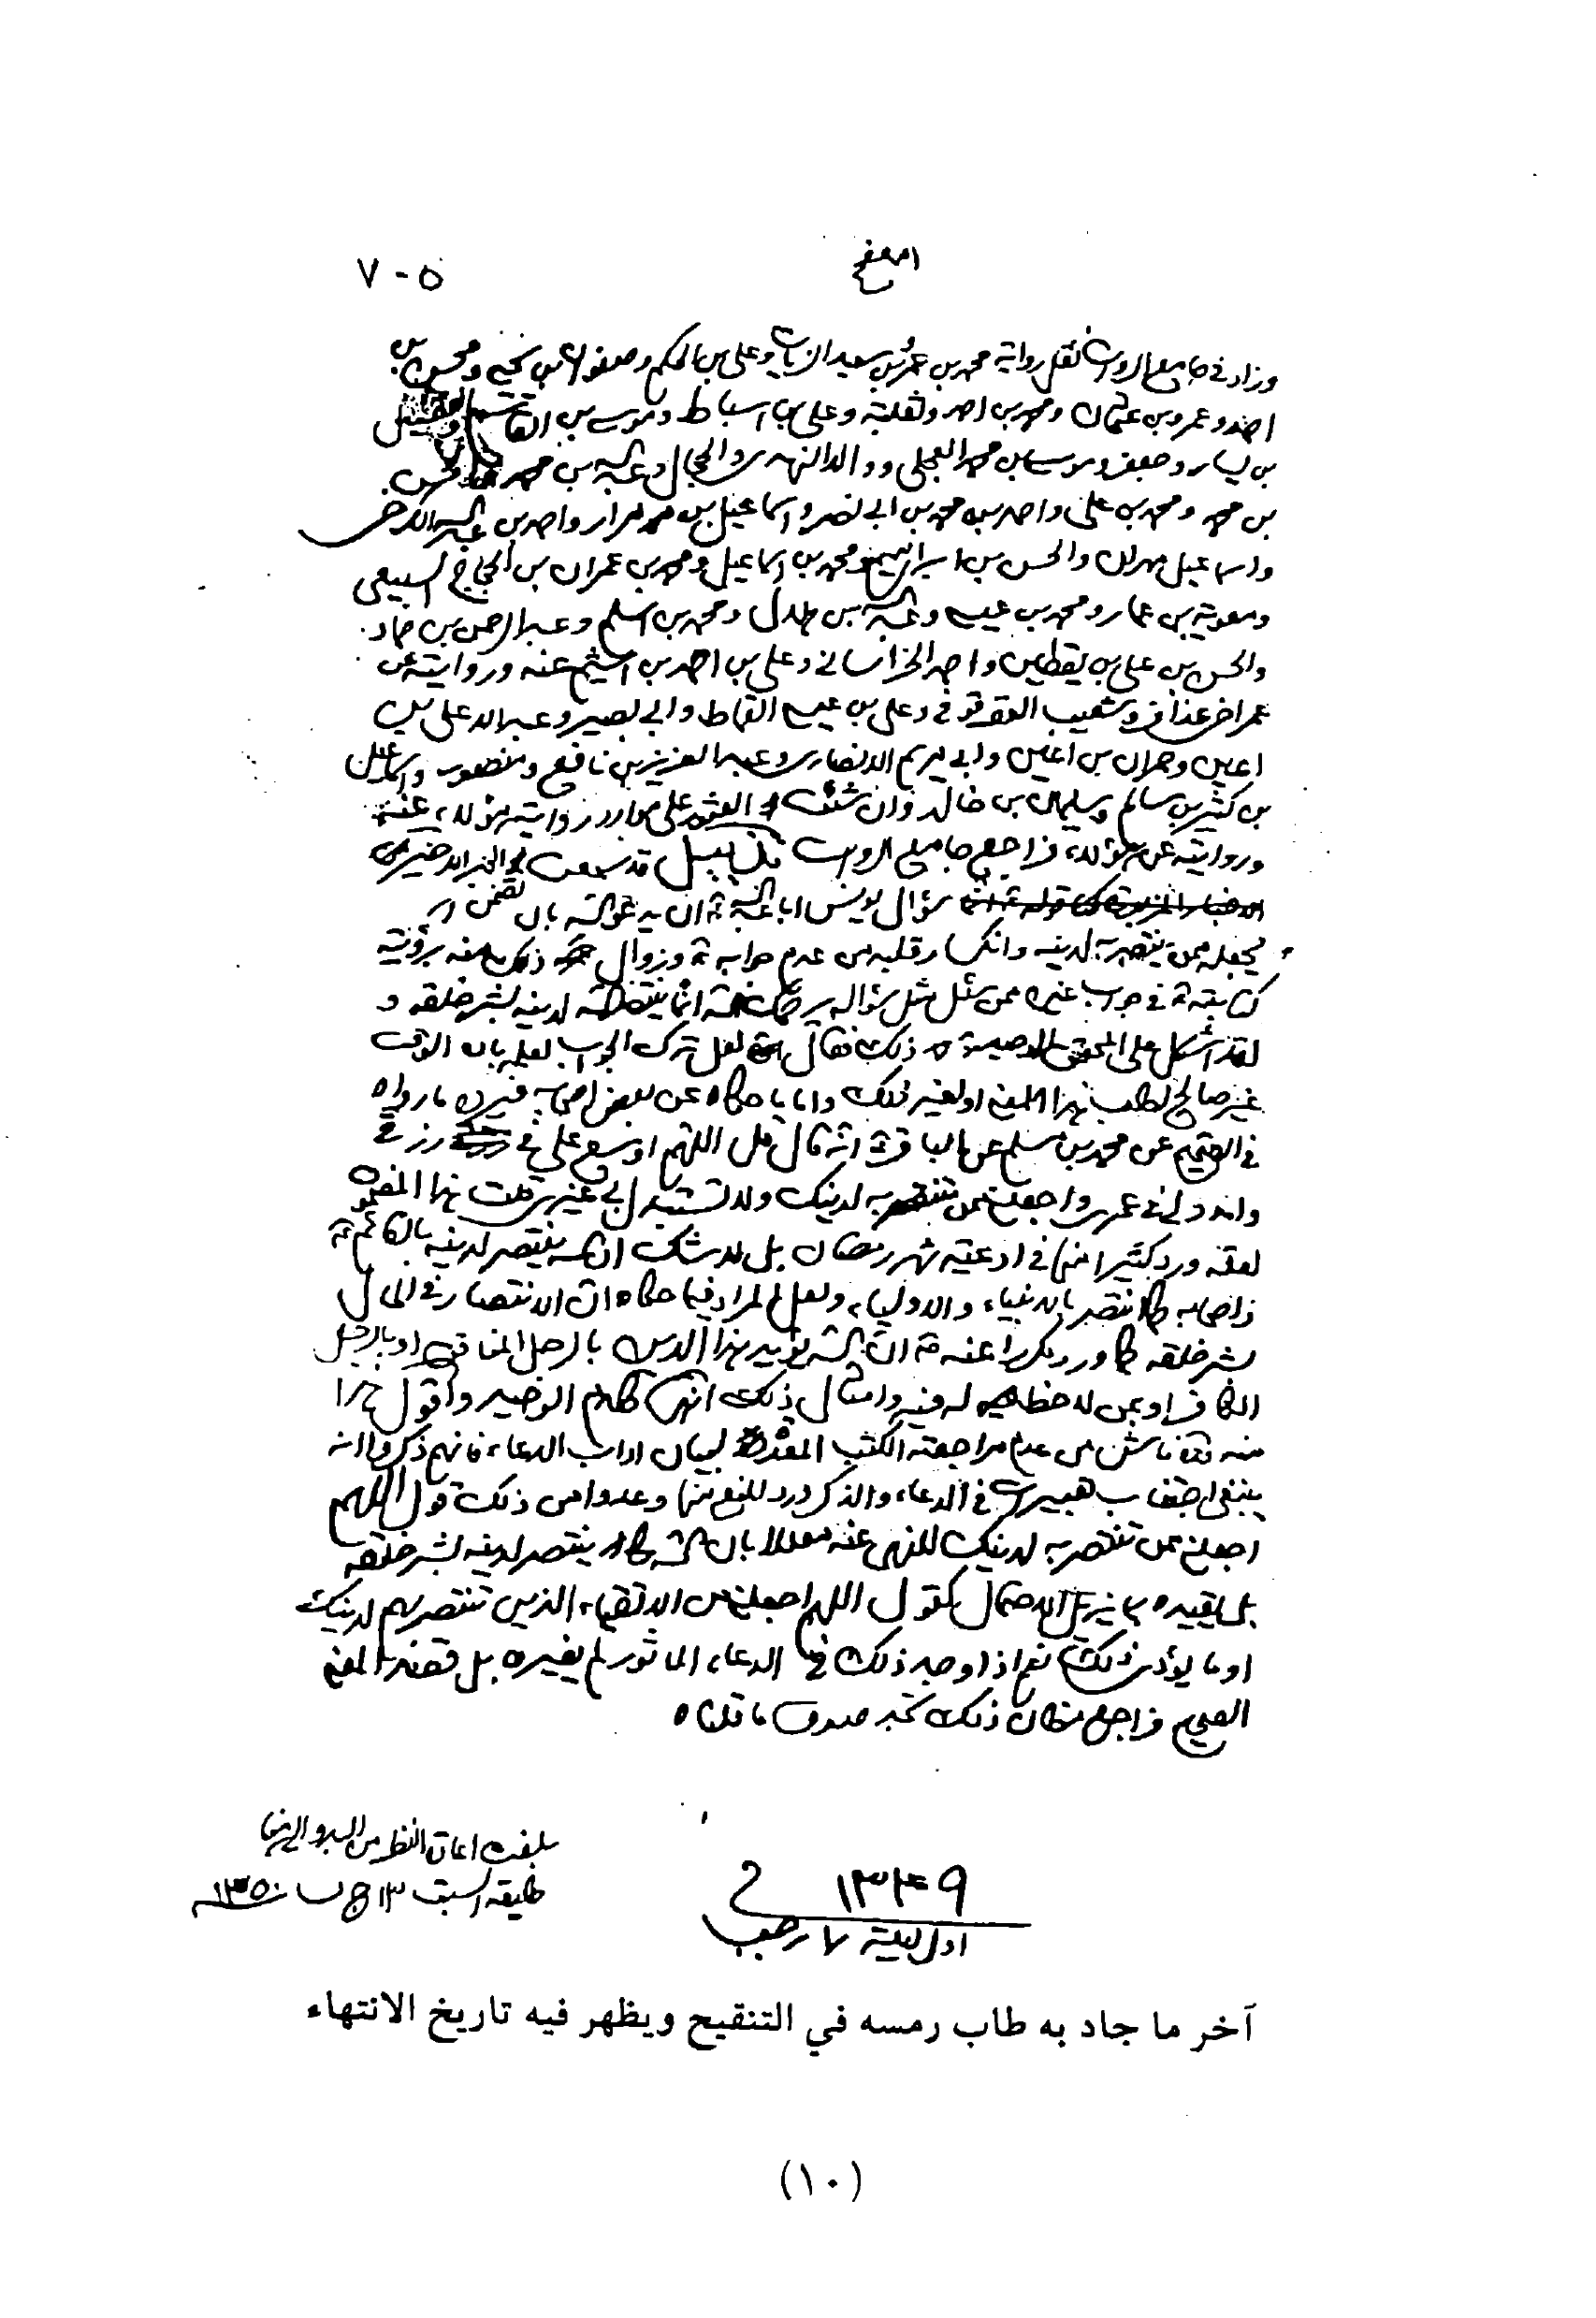 ٥-٧
وزاد في جامع الرواة نقل رواية محمد بن عمرو بن سعيد الزيات وعلي بن الحكم وصفوان بن يحيى ومحسن بن
احمد وعمرو بن عثمان ومحمد بن احمد وثعلبة وعلي بن اسباط وموسى بن القاسم والفضيل
بن يسار وجعفر وموسى بن محمد العجلي ووالد النهدي والحجال وعبد الله بن محمد
بن محمد ومحمد بن علي واحمد بن محمد بن ابي نصر واسماعيل بن مرار واحمد بن عبد الله الكرخي
واسماعيل بن مهران والحسن بن ابراهيم ومحمد بن اسماعيل ومحمد بن عمران بن الحجاج السبيعي
ومعوية بن عمار ومحمد بن عيسى وعبد الله بن هلال ومحمد بن اسلم وعبد الرحمن بن حماد
والحسن بن علي بن يقطين واحمد الخراساني وعلي بن احمد بن اشيم عنه وروايته عن
وشعيب العقرقوفي وعلي بن عيسى القماط وابي بصير وعبد الاعلى بن
اعين وحمران بن اعين وابي مريم الانصاري وعبد العزيز بن نافع ومنصور واسماعيل
بن كثير بن سالم وسليمان بن خالد وان شئت العثور على موارد رواية هؤلاء عنه
وروايته عن هؤلاء فراجع جامع الرواة تذييل قد سمعت في الخبر الاخير من
سؤال يونس ابا عبد الله ع ان يدعو الله بان
يجعله ممن ينتصر به لدينه وانكسار قلبه من عدم جوابه ع وزوال ذلك عنه برؤية
كتابته ع في جواب غيره ممن سئل مثل سؤاله يرحمك الله انما ينتصر الله لدينه بشر خلقه و
لقد اشكل على المحقق الوحيد ره ذلك فقال لعل ترك الجواب لعلمه بان الوقت
غير صالح لطلب هذا المعنى او لغير ذلك واما ما حكاه عن بعض اصحابه فيرده ما رواه
في الصحيح عن محمد بن مسلم عن الباقر ع انه قال قل اللهم اوسع علي في رزقي
وامدد لي في عمري واجعلني ممن تنتصر به لدينك ولا تستبدل بي غيري قلت هذا المضمون
لعله ورد كثيرا منها في ادعية شهر رمضان بل لا شك ان الله ينتصر لدينه بالقائم ع
واصحابه كما انتصر بالانبياء والاولياء ولعل المراد فيما حكاه ان الانتصار في الحال
بشر خلقه كما ورد مكررا عنه ص ان الله يؤيد هذا الدين بالرجل المنافق او بالرجل
الكافر او بمن لا حظ له فيه وامثال ذلك انتهى كلام الوحيد واقول هذا
منه ره ناش من عدم مراجعة الكتب المعدة لبيان اداب الدعاء فانهم ذكروا انه
ينبغي اجتناب تعبيرات في الدعاء والذكر ورد المنع عنها وعدوا من ذلك قول اللهم
اجعلني ممن تنتصر به لدينك للنهي عنه معللا بان الله ينتصر لدينه بشر خلقه
بل يقيده بما يزيل الاحتمال كقول اللهم اجعلني من الاتقياء الذين تنتصر بهم لدينك
او ما يؤدي ذلك نعم اذا وجد ذلك في الدعاء الماثور لم يغيره بل قصد المعنى
الصحيح فراجع مظان ذلك تجد صدق ما قلناه
١٣٤٩
اول ليلة ٧ رجب
بلغت اعادة النظر من البدو الى هنا
١٣ ١٣٥٠
آخر ما جاد به طاب رمسه في التنقيح ويظهر فيه تاريخ الانتهاء
(١٠)